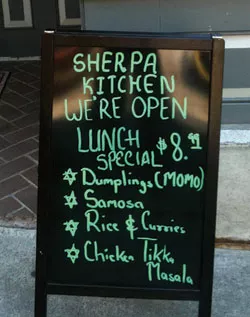 SHERPA
KITCHEN
WE'RE OPEN
LUNCH
SPECIAL $8.99
Dumplings (MOMO)
Samosa
Rice & Curries
Chicken Tikka
Masala